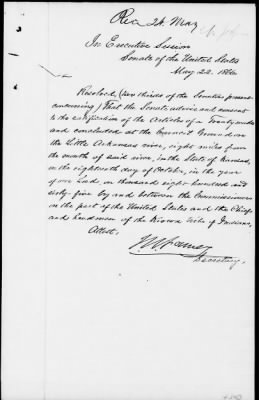 Rec 24 May
In Executive Session
Senate of the United States
May 22. 1866
Resolved, (two thirds of the Senators present
concurring,) That the Senate advise and consent
to the ratification of the Articles of a Treaty made
and concluded at the Council Ground on
the Little Arkansas river, eight miles from
the mouth of said river, in the State of Kansas,
on the eighteenth day of October, in the year
of our Lord, on thousand eight hundred and
sixty five by and between the Commissioners
on the part of the United States and the Chiefs
and headmen of the Kiowa tribe of Indians,
Attest.
Secretary.